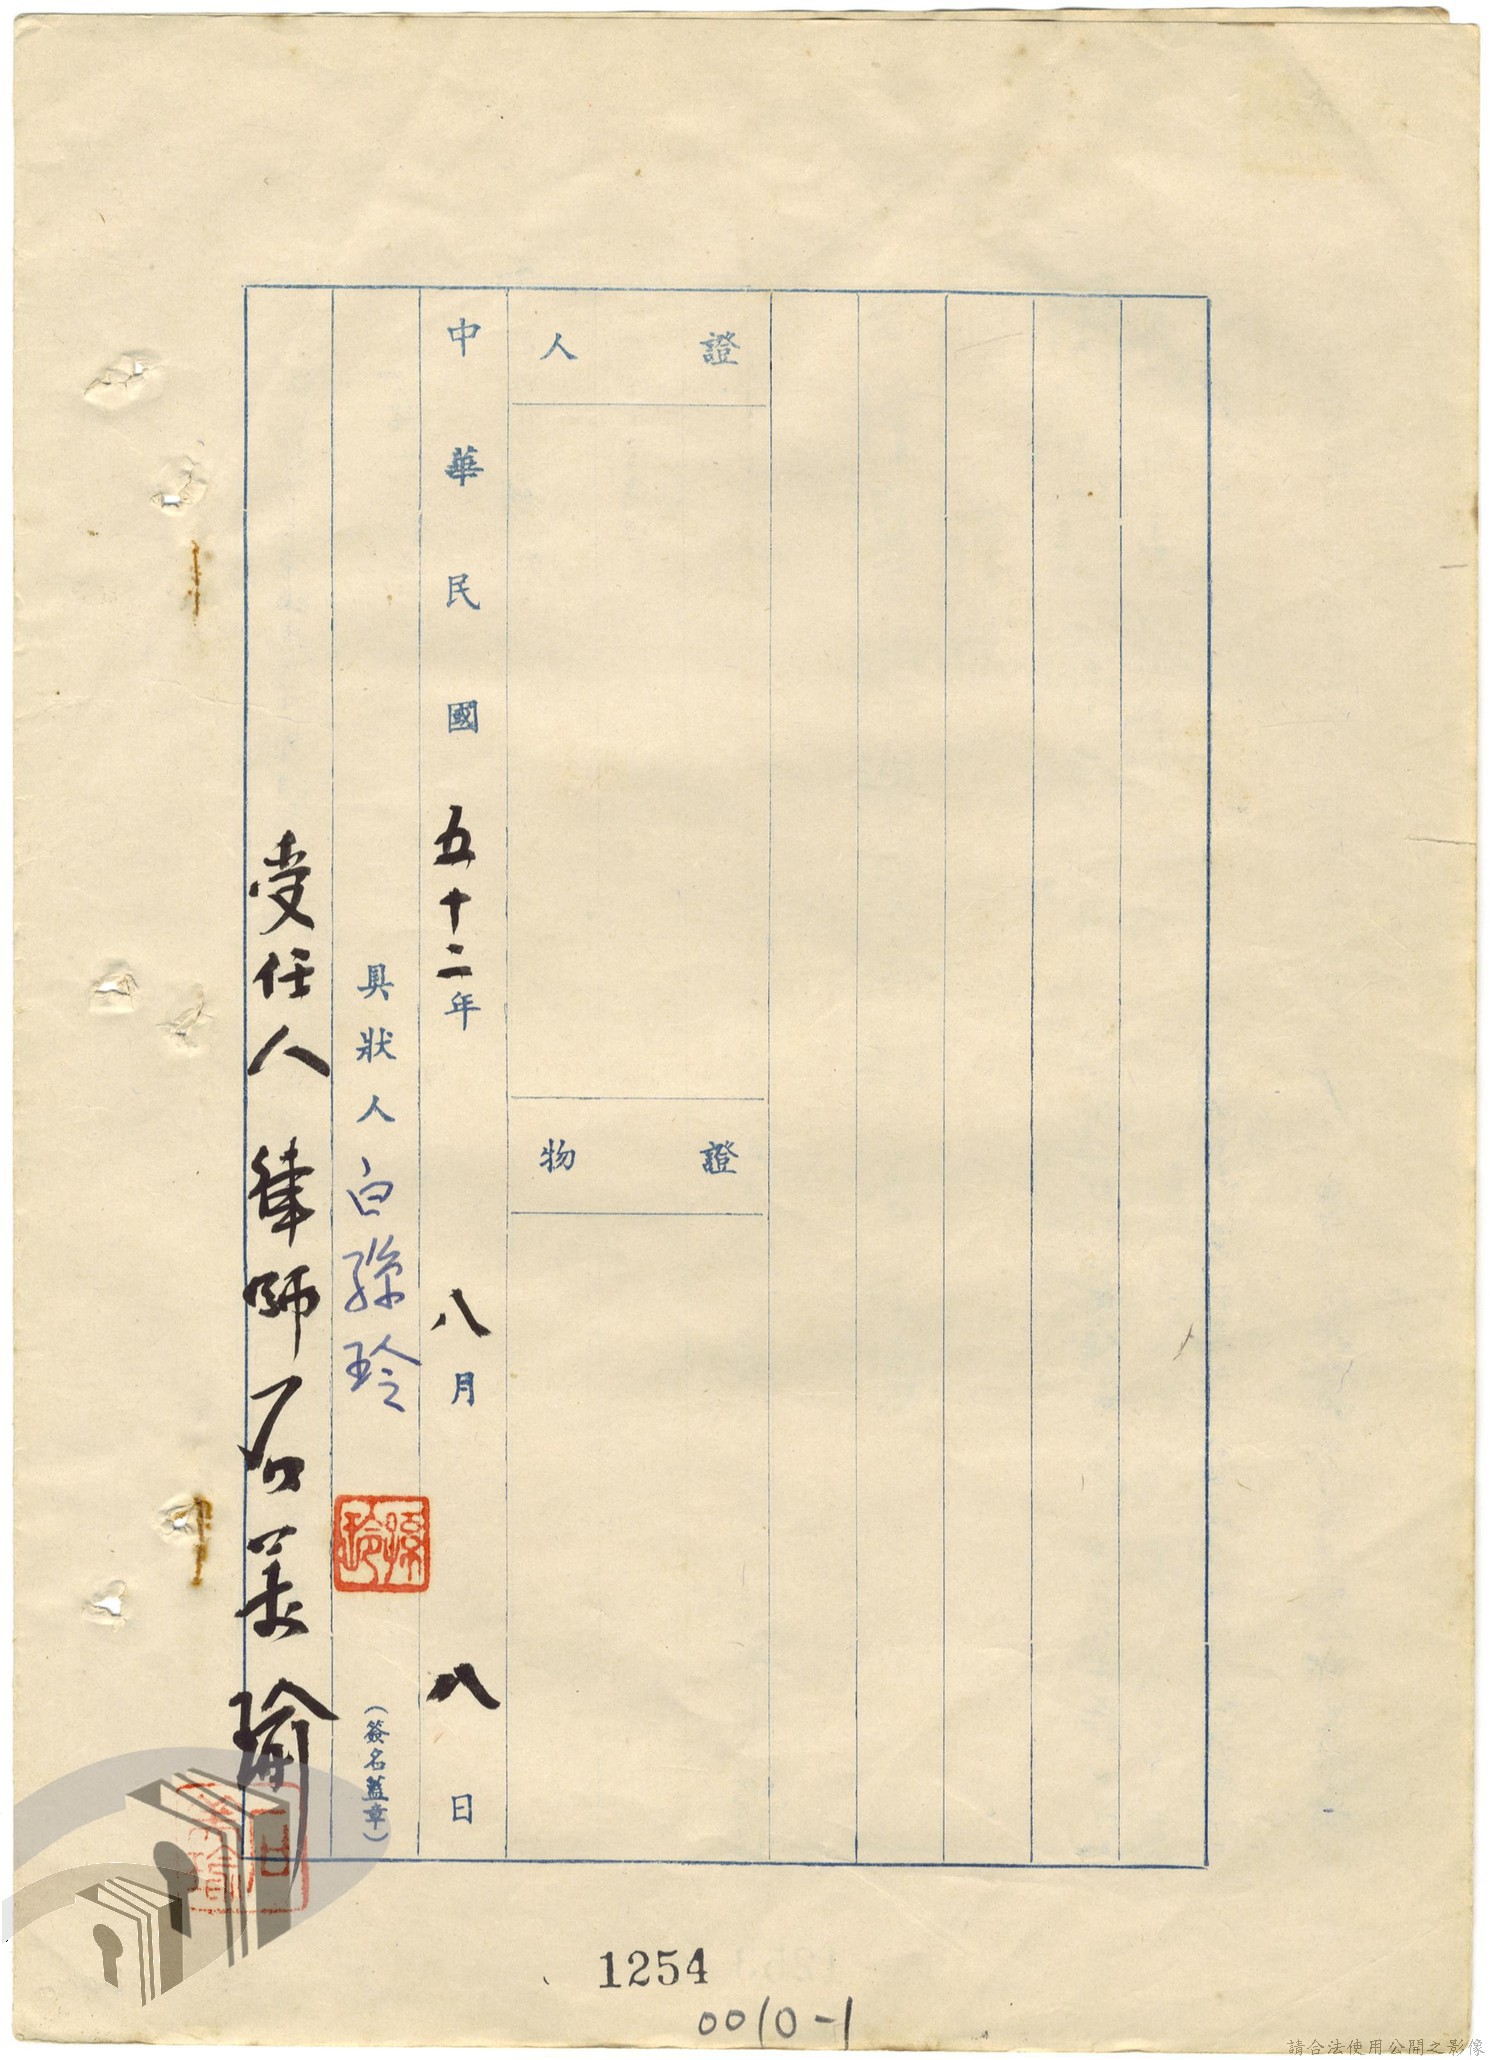 證人
證物
中華民國五十二年八月八日
具狀人白孫玲（簽名蓋章）
孫玲
受任人律師石美瑜
石美瑜
1254
0010-1
請合法使用公開之影像